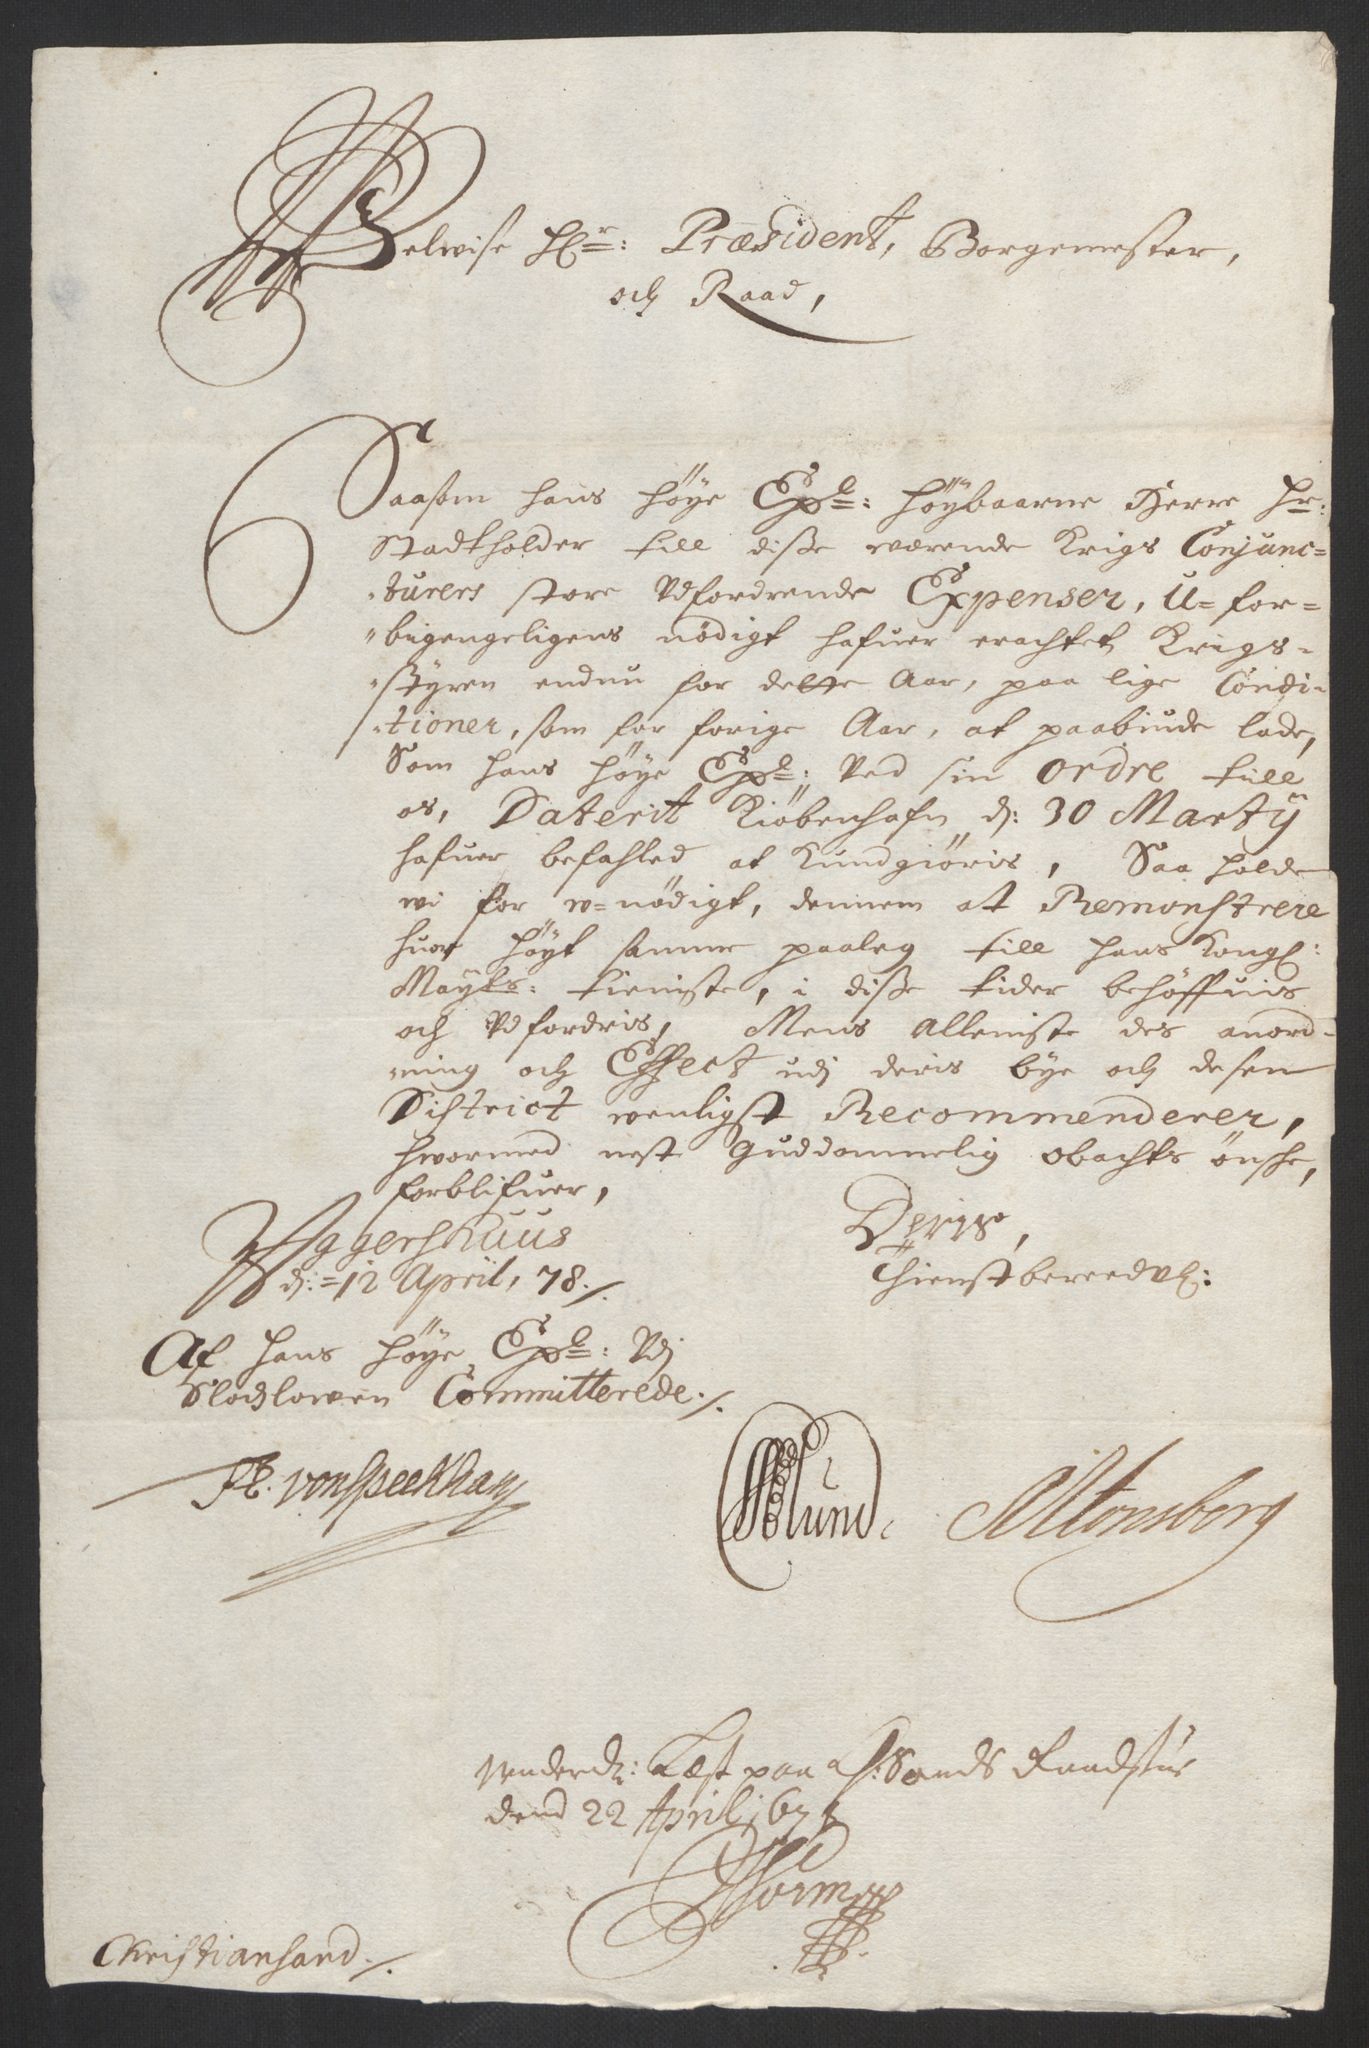 Velwise Hr: Præsident, Borgemester,
och Raad,
Saasom hans höye Expl: Höybaarne Herre Hr:
Stadtholder till disse værende Krigs Conjunc-
turers store Udfordrende Expenser, U-for-
bigengeligens nödigt hafuer erachtet Krigs-
Styren endnu for dette Aar, paa lige Condi-
tioner, som for forige Aar, at paabiude lade,
Som hans höye Expl: Ved sin Ordre till
os, Daterit Kiöbenhafn d: 30 Martij
hafuer befahled at Kundgiöris, Saa holde
wi for w-nödigt, dennem at Remonstrere
huor höyt samme paaleg till hans Kongl:
Mayts: tieniste, i disse tider behöffuis
och Udfordris, Mens Alleniste des anord-
ning och Effect udj deris bye och desen
District wenligst Recommenderer,
hwormed nest Guddommelig obachts önsche,
forblifuer,
Aggershuus
d: 12 April, 78.
Deris,
Thienstbereedvl:
Af hans höye Expl: Udj
Slodzlowen Committerede.
von Speckhan
Lund.
Tonsberg
Underd: Læst paa Chr:Sands Raadstue
dend 22 April 1678
Christiansand.